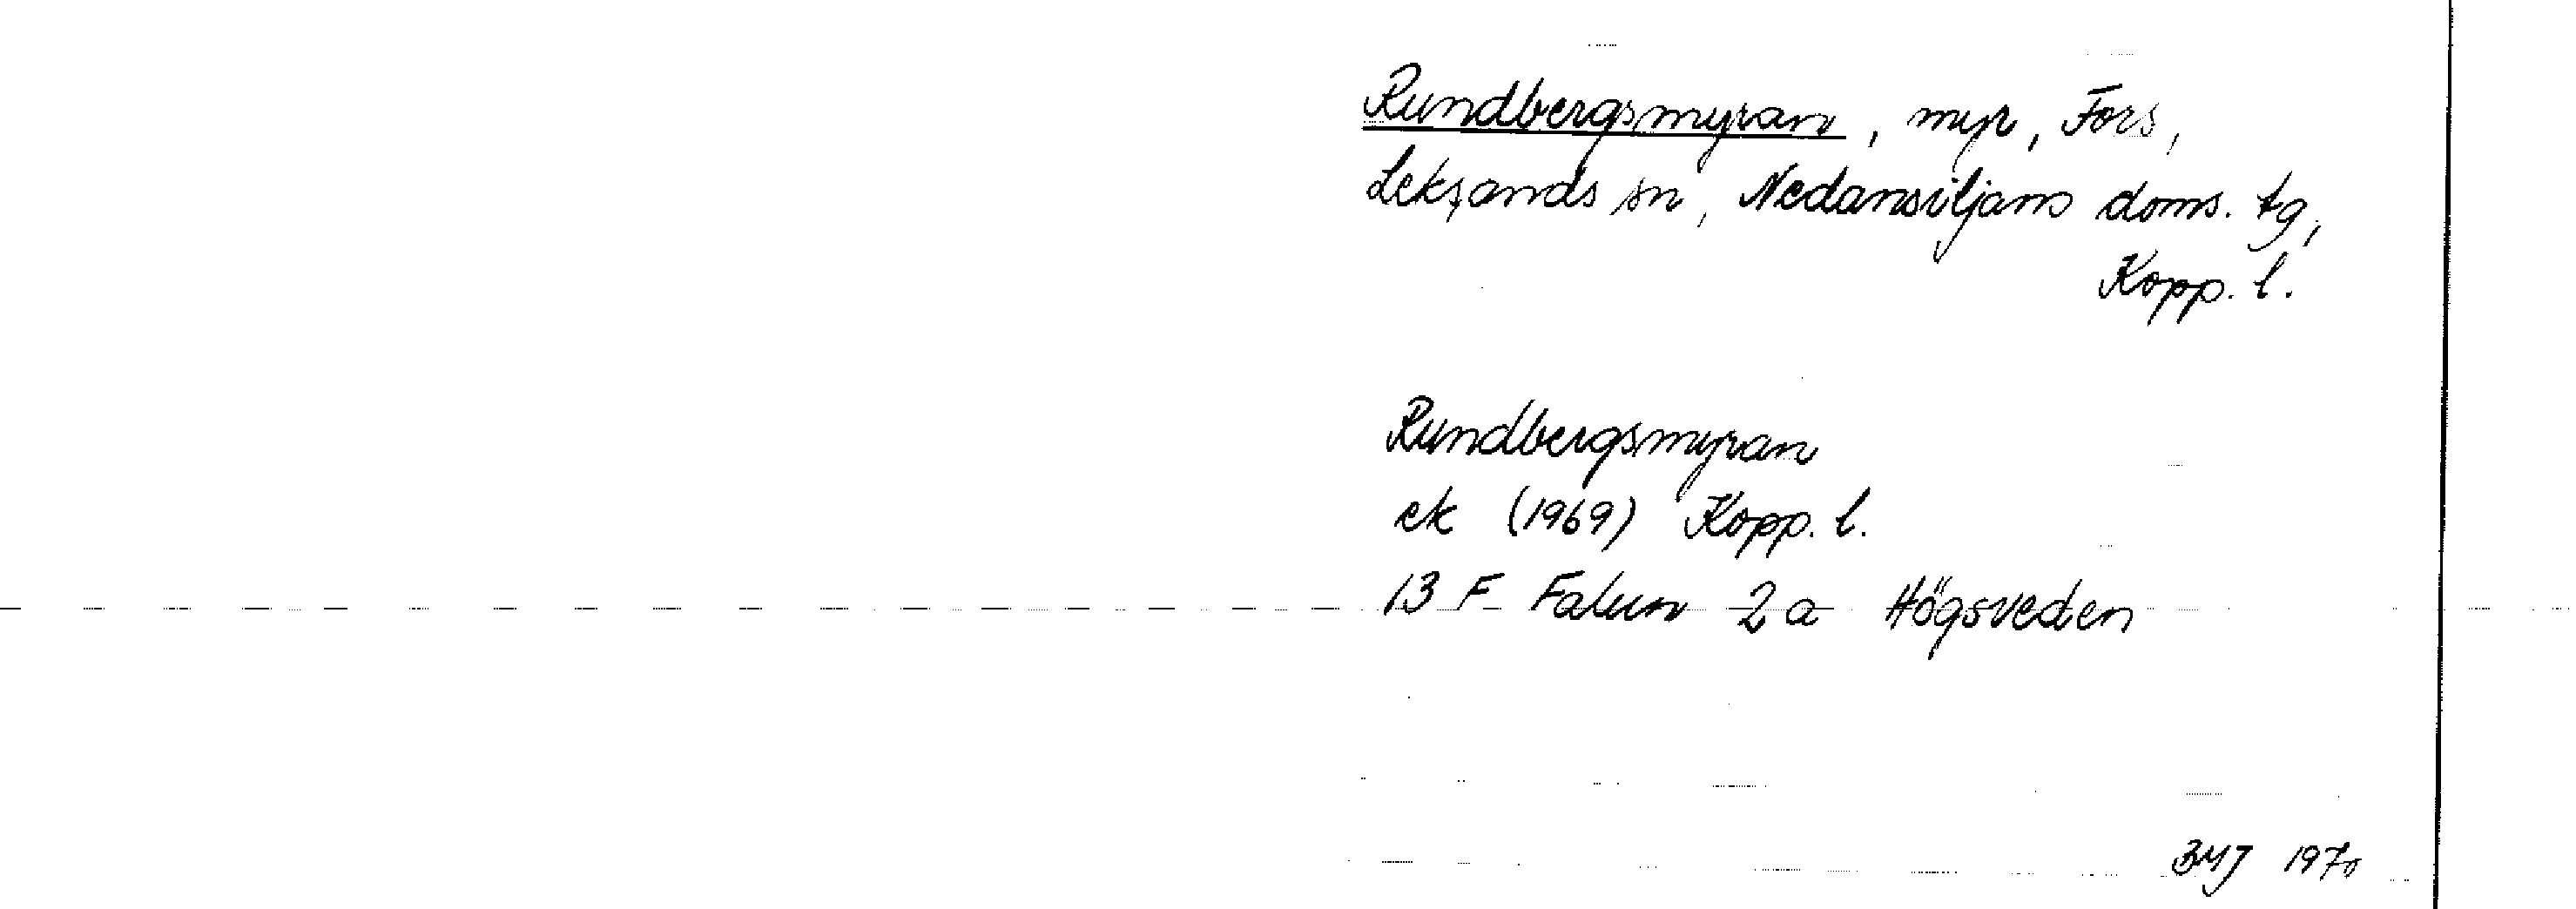 Rundbergsmyran, myr, Fors,
Leksands sn, Nedansiljans doms. tg,
Kopp. l.
Rundbergsmyran
ek (1969) Kopp. l.
13 F Falun 2 a Högsveden
BMJ 1970